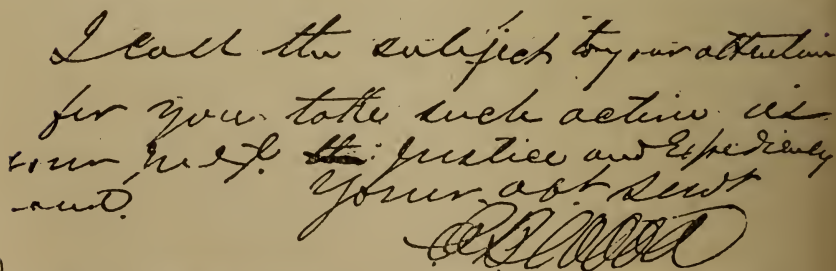 I call the subject to your attention
for you take such action as
your justice and Expediency
Your obt servt